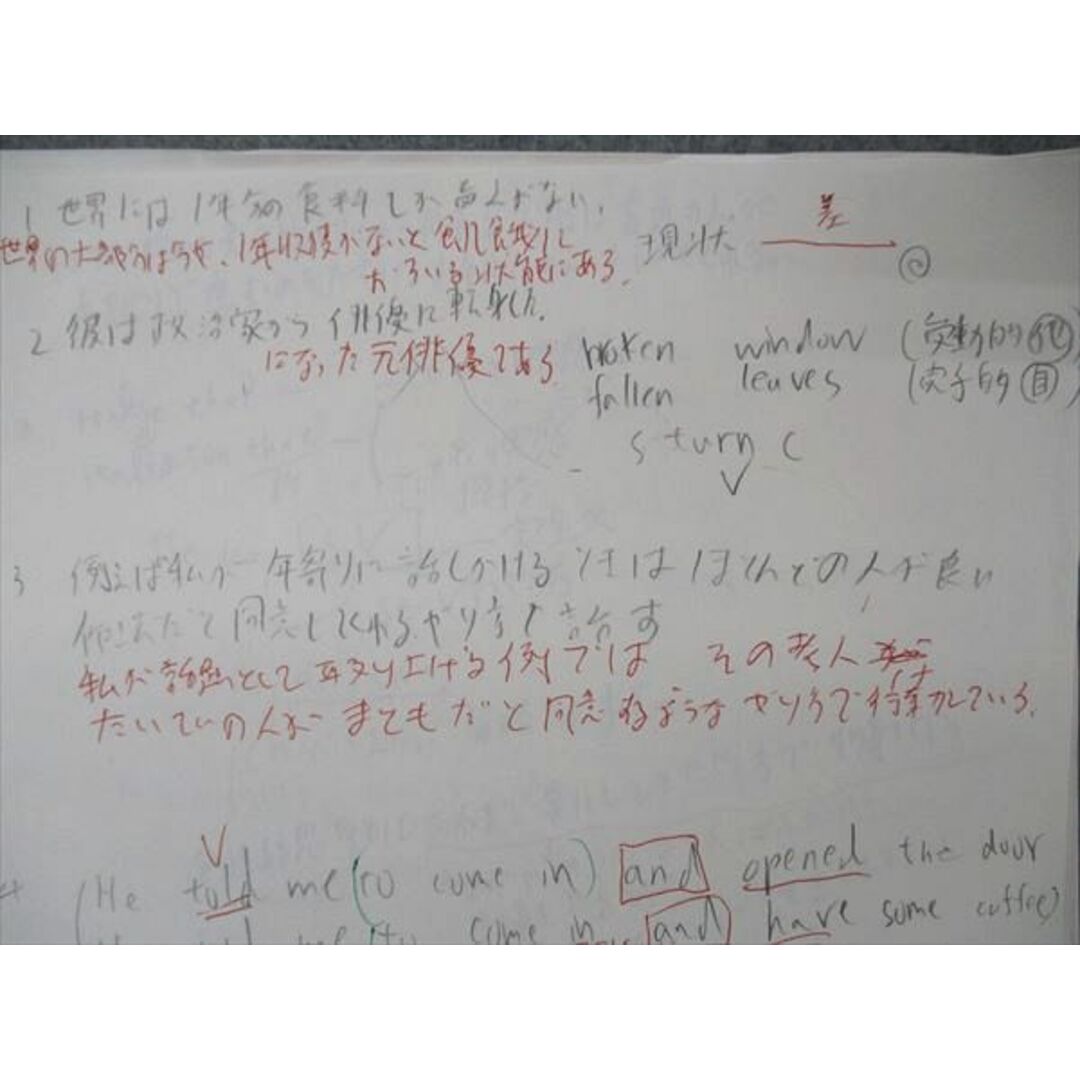 1 世界には1年分の食料しか
世界の大部分は今、1年収穫がないと飢餓に
おちいる状態にある。
現状 差
2 彼は政治家から俳優に転身した。
になった元俳優である
broken window (受動的 他)
fallen leaves (完了的 自)
S turn C
V
3 例えば私が年寄りに話しかける はほとんどの人が良い
方法だと同意してくれるやり方で話す
私が話題として取り上げる例では その老人
たいていの人が まともだと同意するような やり方で行動している。
V
4 (He told me (to come in) and opened the door
me (to come in and have some coffee)